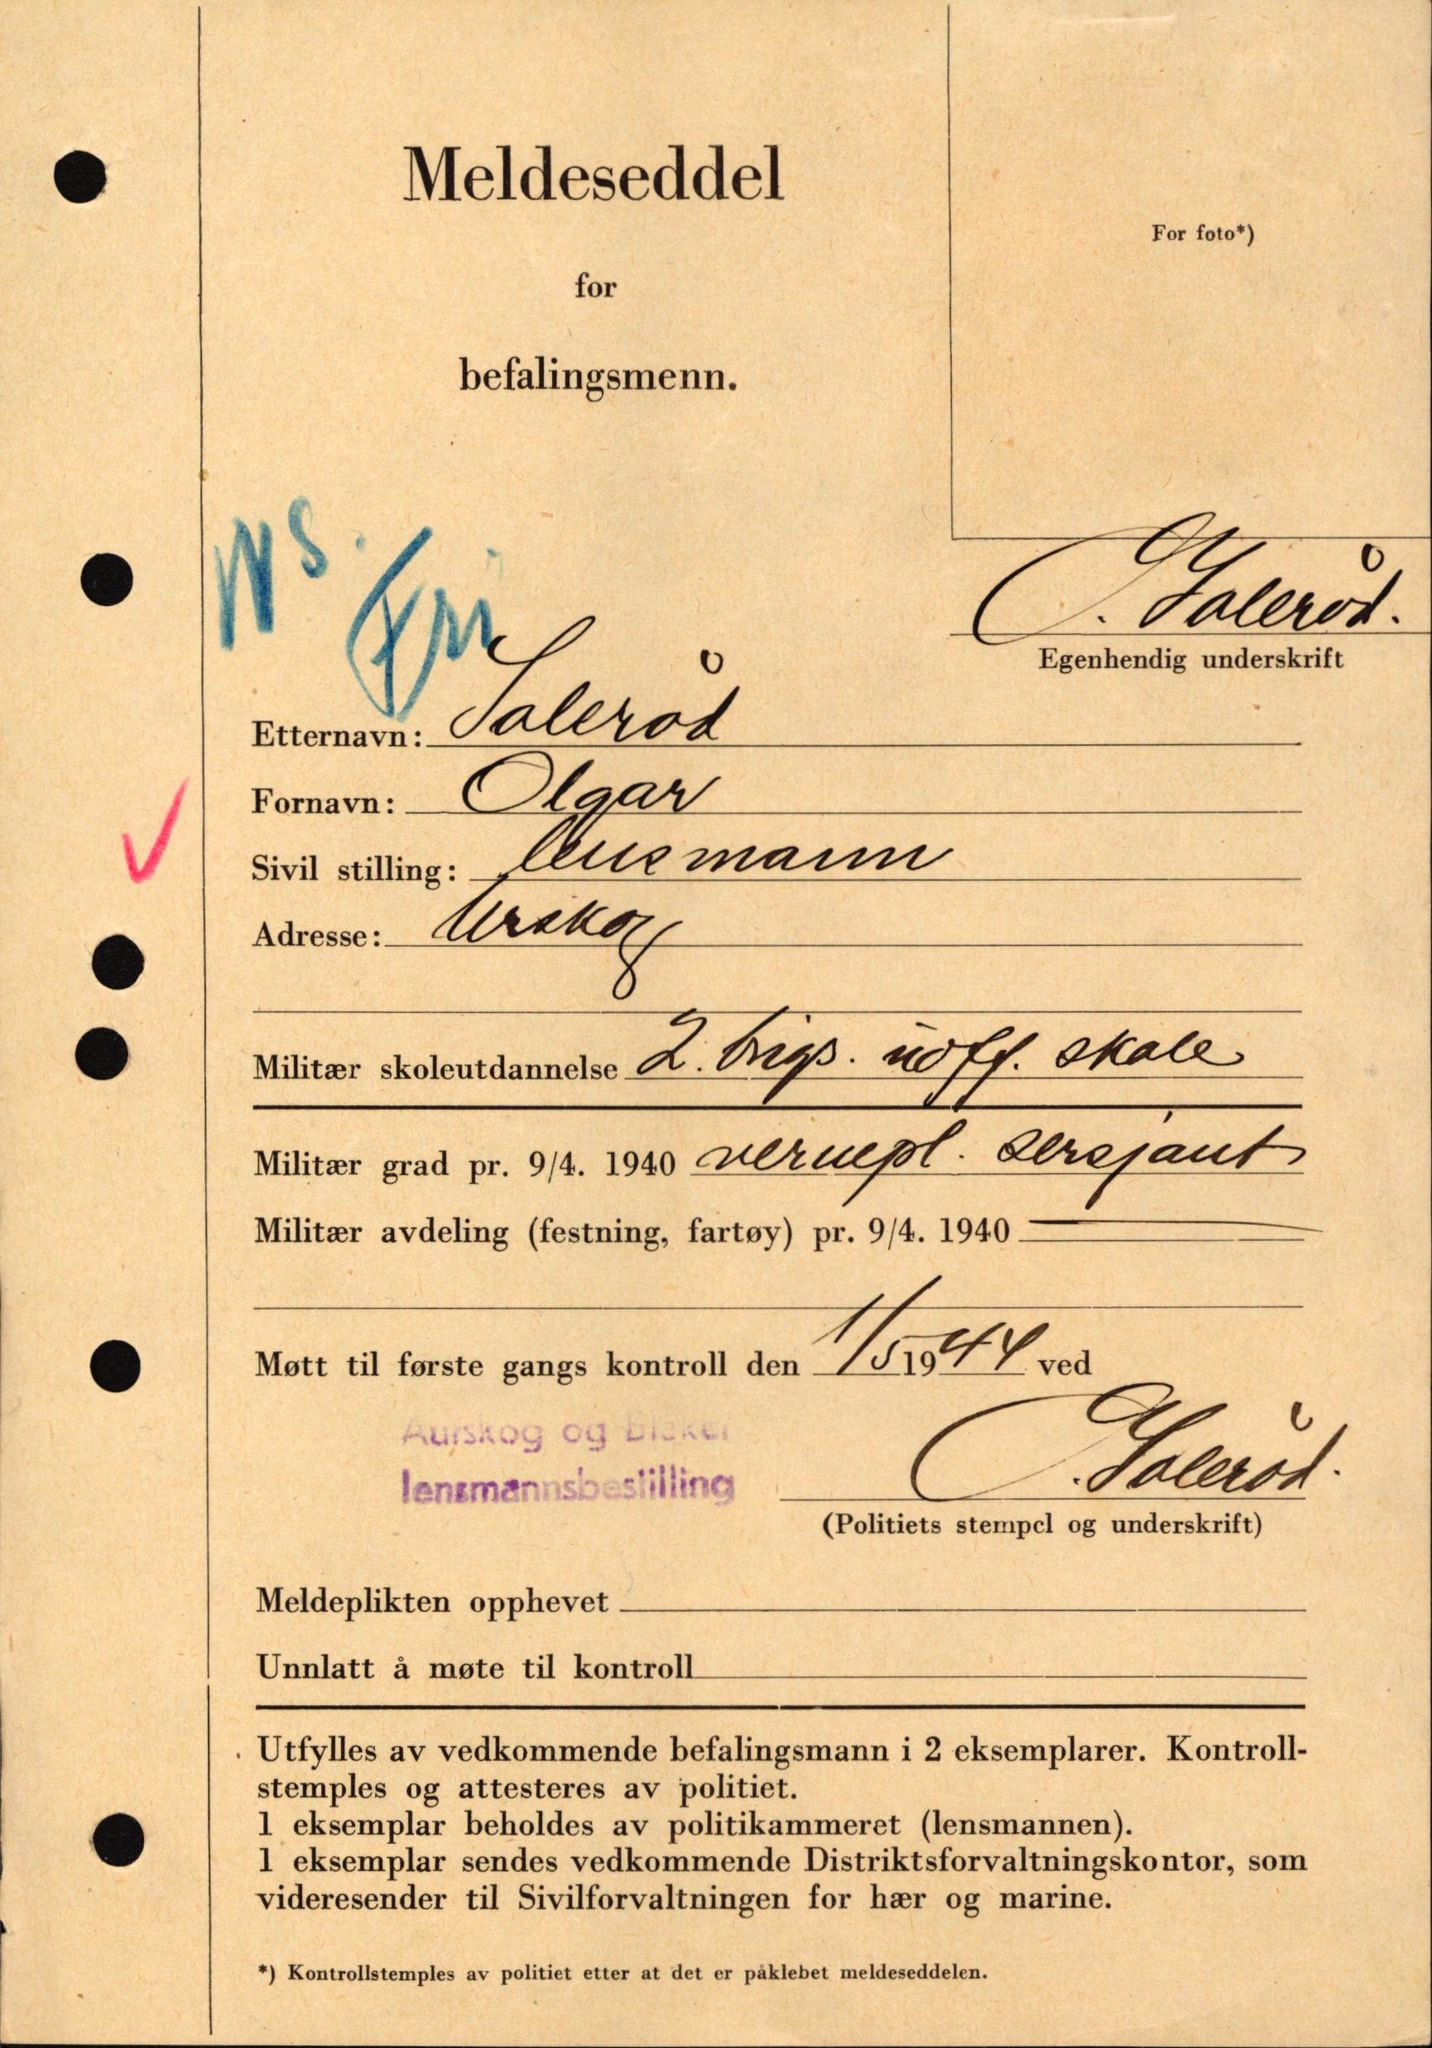 Meldeseddel
For foto*)
for
befalingsmenn.
NS.
Fri
O. Solerød.
Egenhendig underskrift
Etternavn: Solerød
Fornavn: Olgar
Sivil stilling: lensmann
Adresse: Urskog
Militær skoleutdannelse 2. brigs. uoff. skole
Militær grad pr. 9/4. 1940 vernepl. sersjant
Militær avdeling (festning, fartøy) pr. 9/4. 1940
Møtt til første gangs kontroll den 1/5 1944 ved
Aurskog og Blaker
lensmannsbestilling
O. Solerød.
(Politiets stempel og underskrift)
Meldeplikten opphevet
Unnlatt å møte til kontroll
Utfylles av vedkommende befalingsmann i 2 eksemplarer. Kontroll-
stemples og attesteres av politiet.
1 eksemplar beholdes av politikammeret (lensmannen).
1 eksemplar sendes vedkommende Distriktsforvaltningskontor, som
videresender til Sivilforvaltningen for hær og marine.
*) Kontrollstemples av politiet etter at det er påklebet meldeseddelen.